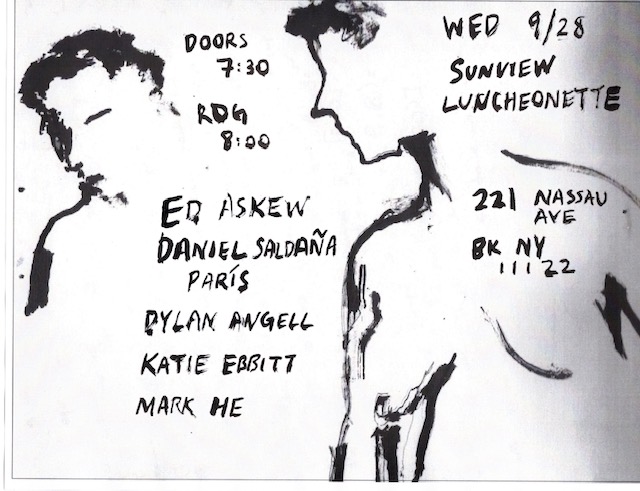 DOORS
7:30
RDG
8:00
ED ASKEW
DANIEL SALDAÑA
PARÍS
DYLAN ANGELL
KATIE EBBITT
MARK HE
WED 9/28
SUNVIEW
LUNCHEONETTE
221 NASSAU
AVE
BK NY
11122